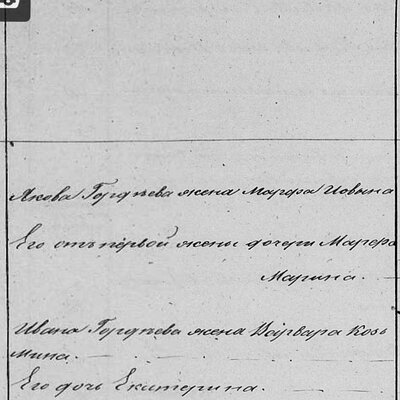 Якова Гордѣева жена Марфа Иовина
Его отъ первой жены дочери Марфа
Марина.
Ивана Гордѣева жена Варвара Козь
мина.
Его дочь Екатерина.